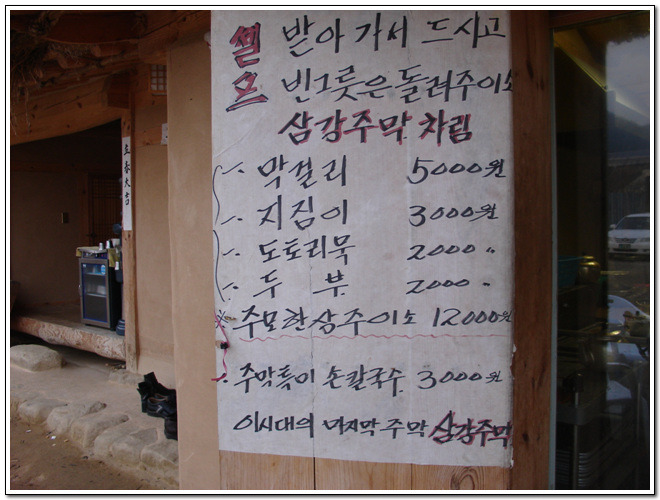 셀프
받아 가서 드시고
빈그릇은 돌려주이소
삼강주막 차림
막걸리 5000원
지짐이 3000원
도토리묵 2000 〃
두부 2000 〃
주모한상주이소 12000원
주막특미 손칼국수 3000원
이시대의 마지막 주막 삼강주막
立春大吉